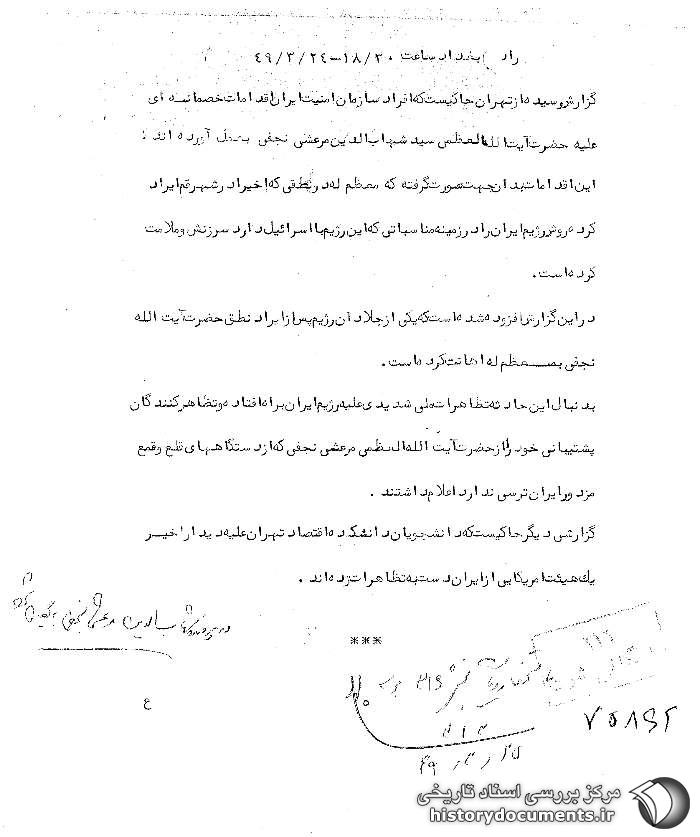 رادیو بغداد ساعت ۱۸/۳۰ – ۴۹/۳/۲۴
گزارش رسیده از تهران حاکیست که افراد سازمان امنیت ایران اقدامات خصمانه ای
علیه حضرت آیت الله العظمی سید شهاب الدین مرعشی نجفی بعمل آورده اند .
این اقدامات بدان جهت صورت گرفته که معظم له در نطقی که اخیرا در شهر قم ایراد
کرده روش رژیم ایران را در زمینه مناسباتی که این رژیم با اسرائیل دارد سرزنش و ملامت
کرده است .
در این گزارش افزوده شده است که یکی از جلادان رژیم پس از ایراد نطق حضرت آیت الله
نجفی بمعظم له اهانت کرده است .
بدنبال این حادثه تظاهرات ملی شدیدی علیه رژیم ایران براه افتاده و تظاهر کنندگان
پشتیبانی خود را از حضرت آیت الله العظمی مرعشی نجفی که از دستگاههای قلع و قمع
مزدور ایران ترسی ندارد اعلام داشتند .
گزارشی دیگر حاکیست که دانشجویان دانشکده اقتصاد تهران علیه دیدار اخیر
یک هیئت امریکایی از ایران دست به تظاهرات زده اند .
***
ع
۷۵۸۹۲
۳۱۲
مرکز بررسی اسناد تاریخی
historydocuments.ir